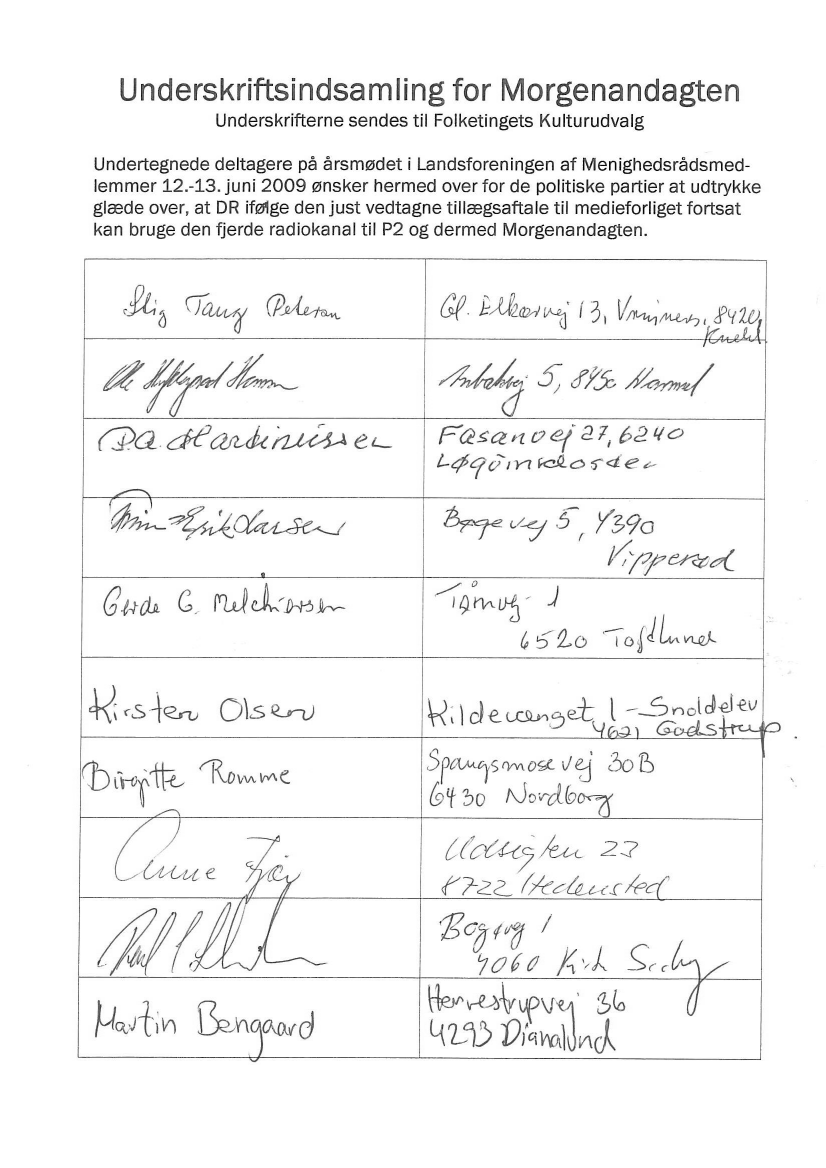 Underskriftsindsamling for Morgenandagten
Underskrifterne sendes til Folketingets Kulturudvalg
Undertegnede deltagere på årsmødet i Landsforeningen af Menighedsrådsmed-
lemmer 12.-13. juni 2009 ønsker hermed over for de politiske partier at udtrykke
glæde over, at DR ifølge den just vedtagne tillægsaftale til medieforliget fortsat
kan bruge den fjerde radiokanal til P2 og dermed Morgenandagten.
Stig Petersen
Gl. Elkærvej 13, 8420
Knebel
Ole
5, 8450 Hammel
P.A. Martinussen
Fasanvej 27, 6240
Løgumkloster
Erik Larsen
Bøgevej 5, 4390
Vipperød
Gerde G. Melchiorsen
1
6520 Toftlund
Kirsten Olsen
Kildevænget 1 - Snoldelev
4621 Gadstrup
Birgitte Romme
Spangsmosevej 30B
6430 Nordborg
Anne
Udsigten 23
8722 Hedensted
1
4060
Martin Bengaard
Hervestrupvej 36
4293 Dianalund